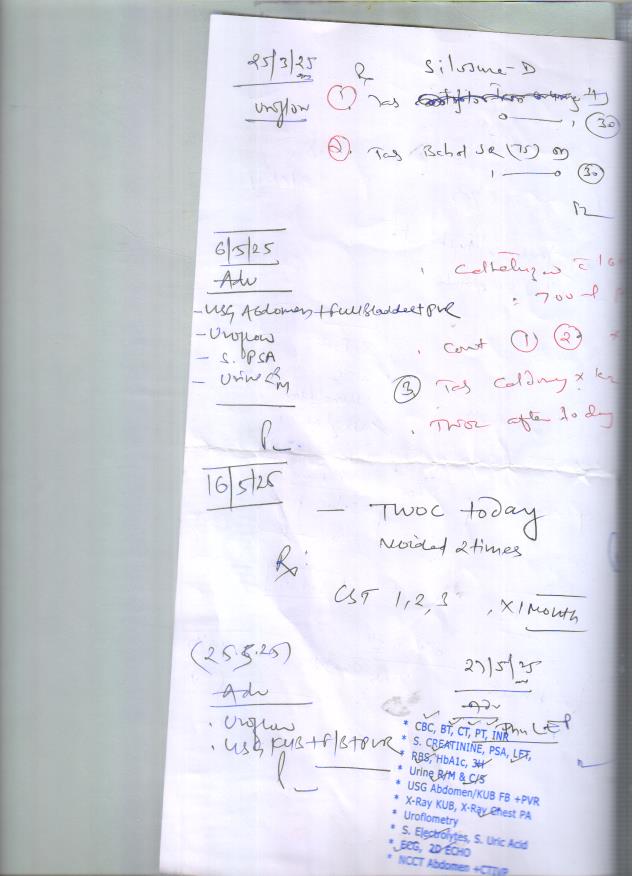 25/3/25
Uroflow
Rx Silosure-D
① Tab
0——, 30
② Tab Bchol SR (75) 
1——0 30
6/5/25
Adv
- USG Abdomen + Full Bladder + PVR
- Uroflow
- S. PSA
- Urine R/M
700 ml
Cont ① ②
③ Tab
TWOC after 10 day
16/5/25
— TWOC today
Voided 2 times
Rx
CST 1, 2, 3, x 1 Month
(25.5.25)
Adv
. Uroflow
. USG KUB + F/B + PVR
27/5/25
Adv
* CBC, BT, CT, PT, INR
* S. CREATININE, PSA, LFT,
* RBS, HbA1c, 3H
* Urine R/M & C/S
* USG Abdomen/KUB FB +PVR
* X-Ray KUB, X-Ray Chest PA
* Uroflometry
* S. Electrolytes, S. Uric Acid
* ECG, 2D ECHO
* NCCT Abdomen +CTIVP